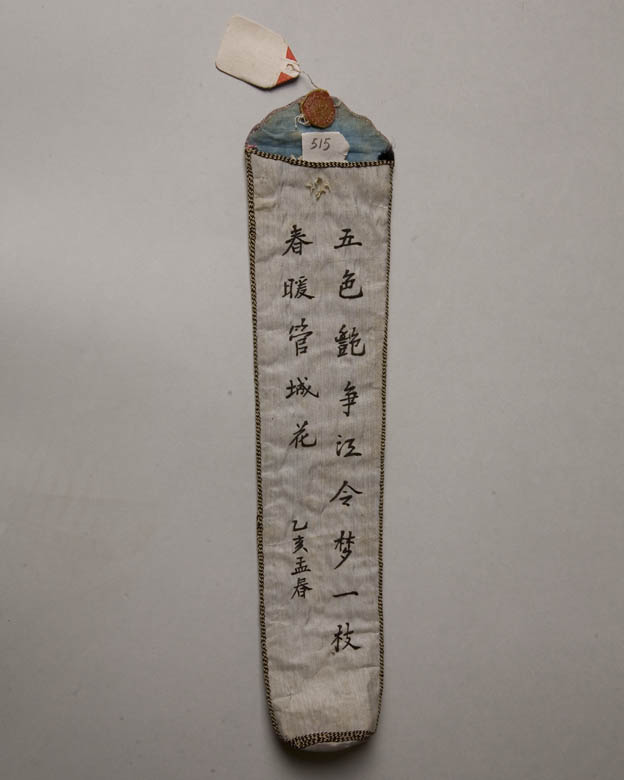 515
五色艷争江令梦一枝
春暖管城花
乙亥孟春